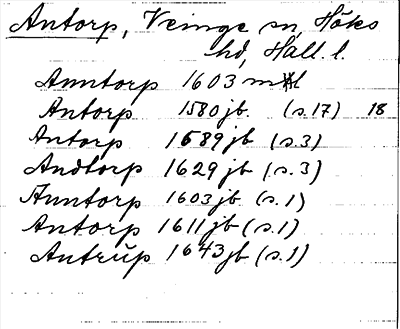 Antorp, Veinge sn, Höks
hd, Hall. l.
Anntorp 1603 mtl
Antorp 1580 jb. (s. 17) 18
Antorp 1589 jb (s. 3)
Andtorp 1629 jb (s. 3)
Anntorp 1603 jb (s. 1)
Antorp 1611 jb (s. 1)
Antrup 1643 jb (s. 1)